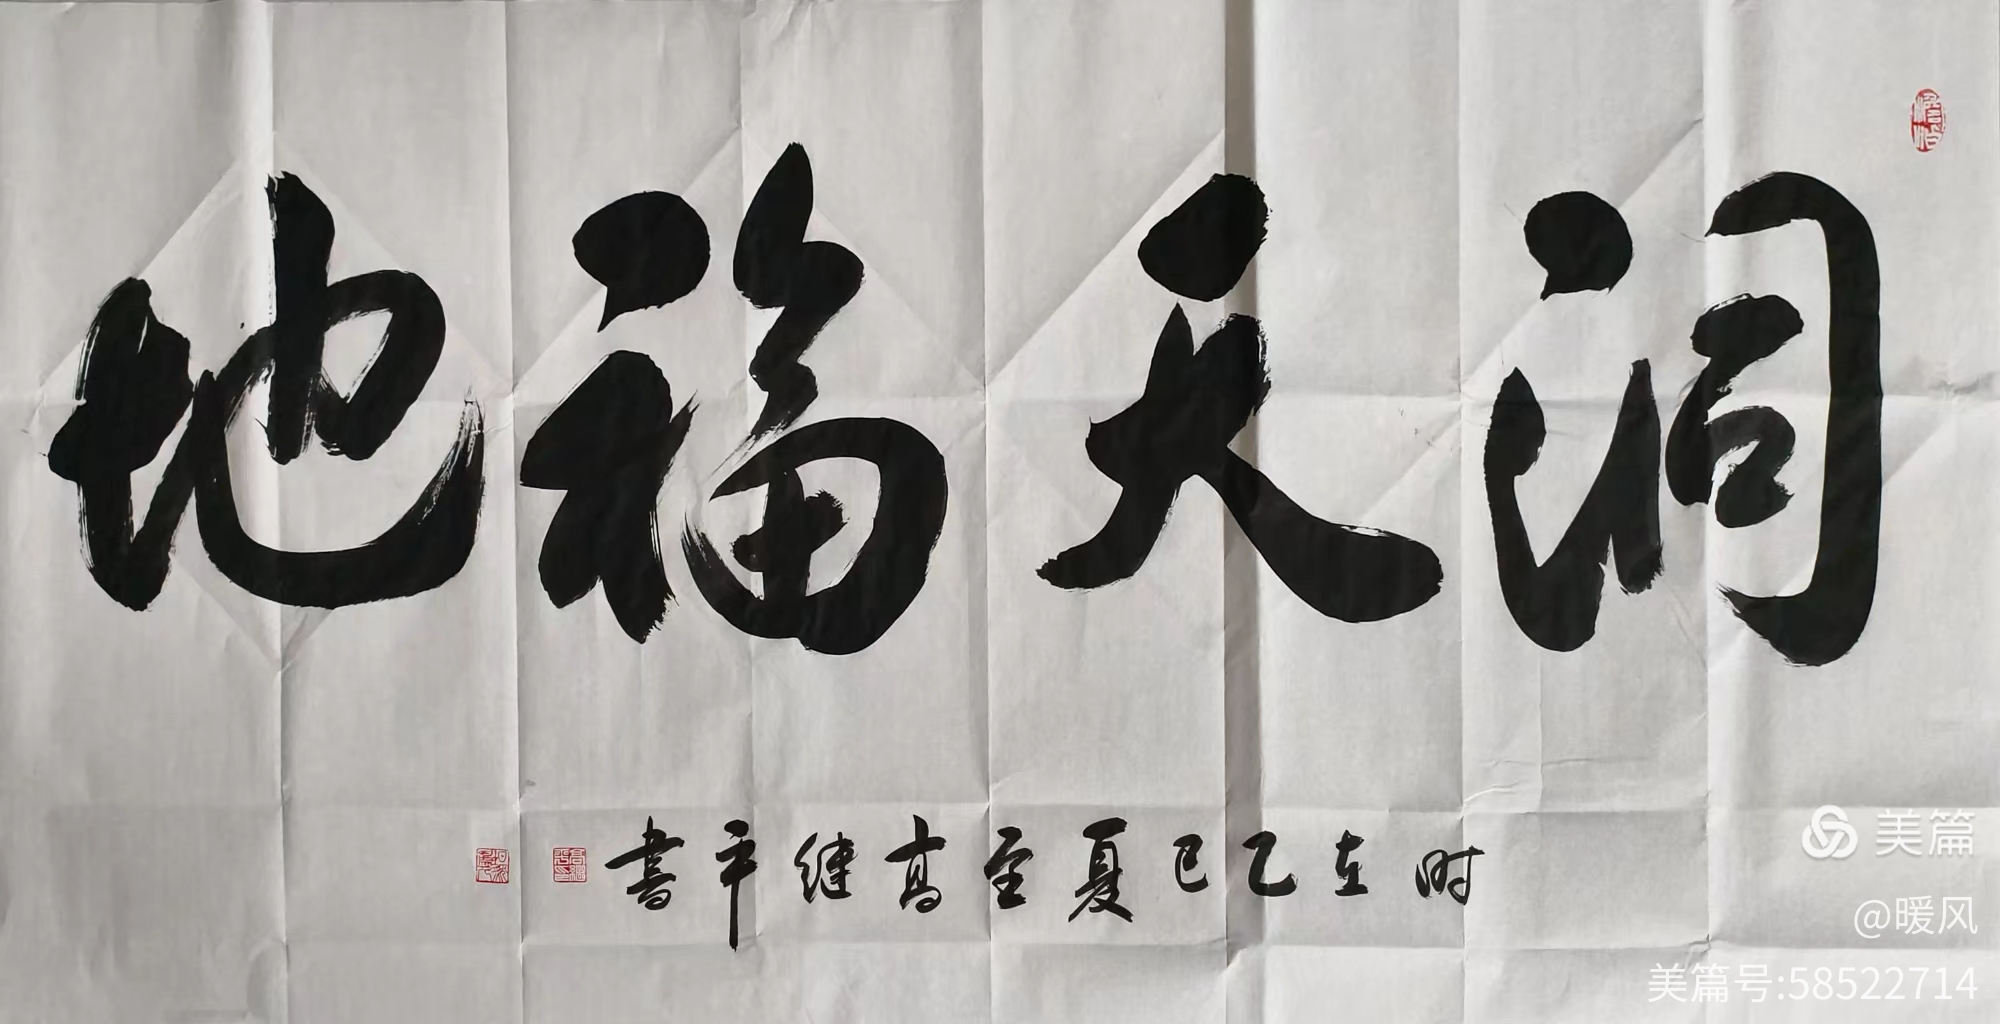 洞天福地
时在乙巳夏至高继平书
美篇
@暖风
美篇号:58522714